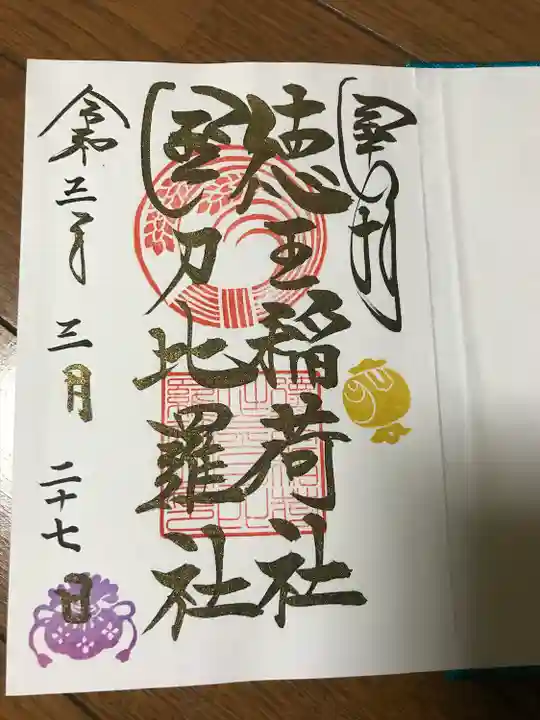 奉拝
徳王稲荷社
金刀比羅社
令和三年三月二十七日